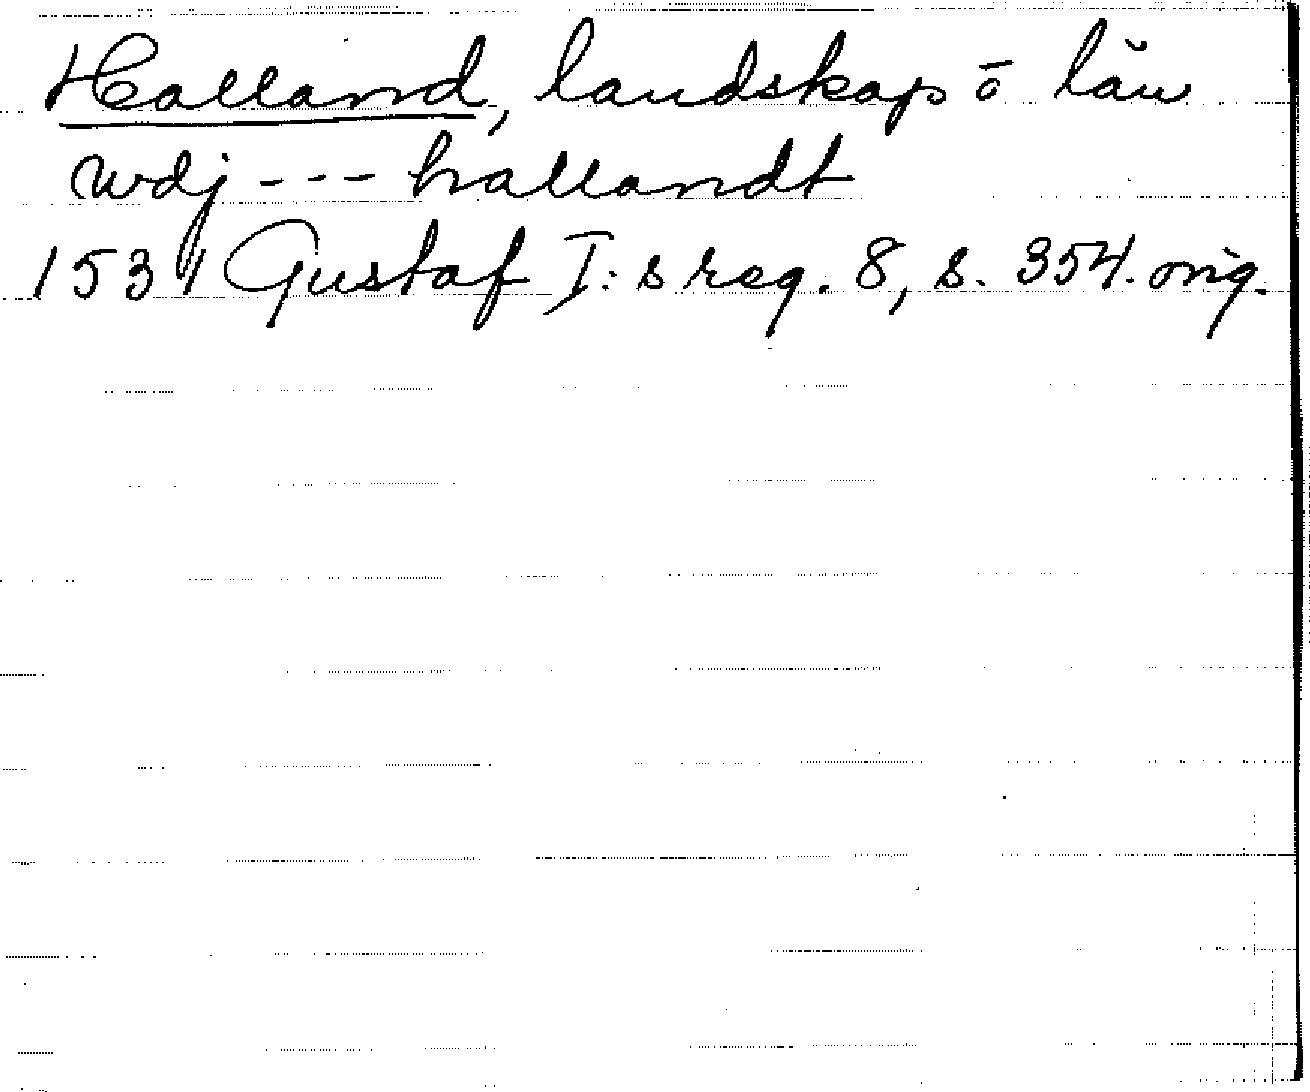 Halland, landskap ō län
wdj --- hallandt
1531 Gustaf I:s reg. 8, s. 354. orig.